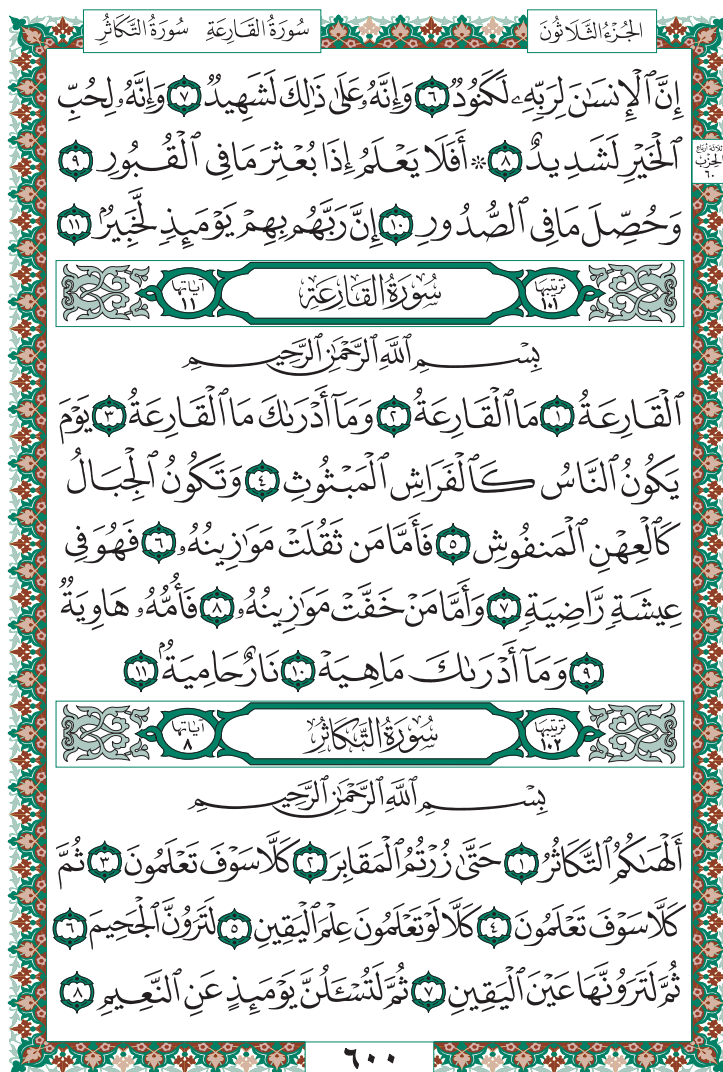 سُورَةُ القَارِعَةِ سُورَةُ التَّكَاثُرِ
الجُزْءُ الثَّلَاثُونَ
إِنَّ ٱلْإِنسَٰنَ لِرَبِّهِۦ لَكَنُودٌ ٦ وَإِنَّهُۥ عَلَىٰ ذَٰلِكَ لَشَهِيدٌ ٧ وَإِنَّهُۥ لِحُبِّ
ٱلْخَيْرِ لَشَدِيدٌ ٨ ۞ أَفَلَا يَعْلَمُ إِذَا بُعْثِرَ مَا فِي ٱلْقُبُورِ ٩
ثلاثة أرباع
الحِزْب
٦٠
وَحُصِّلَ مَا فِي ٱلصُّدُورِ ١٠ إِنَّ رَبَّهُم بِهِمْ يَوْمَئِذٍ لَّخَبِيرٌۢ ١١
ترتيبها ١٠١ سُورَةُ القَارِعَةِ آياتها ١١
بِسْمِ ٱللَّهِ ٱلرَّحْمَٰنِ ٱلرَّحِيمِ
ٱلْقَارِعَةُ ١ مَا ٱلْقَارِعَةُ ٢ وَمَآ أَدْرَىٰكَ مَا ٱلْقَارِعَةُ ٣ يَوْمَ
يَكُونُ ٱلنَّاسُ كَٱلْفَرَاشِ ٱلْمَبْثُوثِ ٤ وَتَكُونُ ٱلْجِبَالُ
كَٱلْعِهْنِ ٱلْمَنفُوشِ ٥ فَأَمَّا مَن ثَقُلَتْ مَوَٰزِينُهُۥ ٦ فَهُوَ فِي
عِيشَةٍ رَّاضِيَةٍ ٧ وَأَمَّا مَنْ خَفَّتْ مَوَٰزِينُهُۥ ٨ فَأُمُّهُۥ هَاوِيَةٌ
٩ وَمَآ أَدْرَىٰكَ مَا هِيَهْ ١٠ نَارٌ حَامِيَةٌۢ ١١
ترتيبها ١٠٢ سُورَةُ التَّكَاثُرِ آياتها ٨
بِسْمِ ٱللَّهِ ٱلرَّحْمَٰنِ ٱلرَّحِيمِ
أَلْهَىٰكُمُ ٱلتَّكَاثُرُ ١ حَتَّىٰ زُرْتُمُ ٱلْمَقَابِرَ ٢ كَلَّا سَوْفَ تَعْلَمُونَ ٣ ثُمَّ
كَلَّا سَوْفَ تَعْلَمُونَ ٤ كَلَّا لَوْ تَعْلَمُونَ عِلْمَ ٱلْيَقِينِ ٥ لَتَرَوُنَّ ٱلْجَحِيمَ ٦
ثُمَّ لَتَرَوُنَّهَا عَيْنَ ٱلْيَقِينِ ٧ ثُمَّ لَتُسْـَٔلُنَّ يَوْمَئِذٍ عَنِ ٱلنَّعِيمِ ٨
٦٠٠